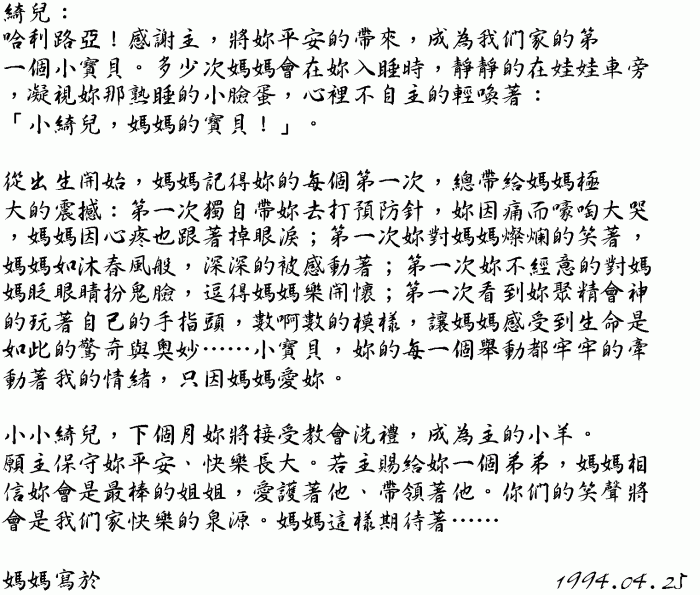 綺兒：
哈利路亞！感謝主，將妳平安的帶來，成為我们家的第
一個小寶貝。多少次媽媽會在妳入睡時，靜靜的在娃娃車旁
，凝視妳那熟睡的小臉蛋，心裡不自主的輕喚著：
「小綺兒，媽媽的寶貝！」。
從出生開始，媽媽記得妳的每個第一次，總帶給媽媽極
大的震撼：第一次獨自帶妳去打預防針，妳因痛而嚎啕大哭
，媽媽因心疼也跟著掉眼淚；第一次妳對媽媽燦爛的笑著，
媽媽如沐春風般，深深的被感動著；第一次妳不經意的對媽
媽眨眼睛扮鬼臉，逗得媽媽樂開懷；第一次看到妳聚精會神
的玩著自己的手指頭，數啊數的模樣，讓媽媽感受到生命是
如此的驚奇與奧妙……小寶貝，妳的每一個舉動都牢牢的牽
動著我的情緒，只因媽媽愛妳。
小小綺兒，下個月妳將接受教會洗禮，成為主的小羊。
願主保守妳平安、快樂長大。若主賜給妳一個弟弟，媽媽相
信妳會是最棒的姐姐，愛護著他、帶領著他。你们的笑聲將
會是我们家快樂的泉源。媽媽這樣期待著……
媽媽寫於 1994.04.25